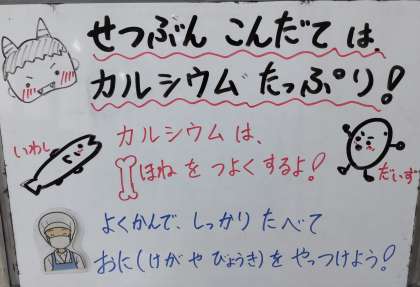 せつぶん こんだて は、
カルシウム たっぷり!
いわし
カルシウムは、
ほね を つよく するよ!
だいず
よくかんで、しっかり たべて
おに(けが や びょうき)を やっつけよう!